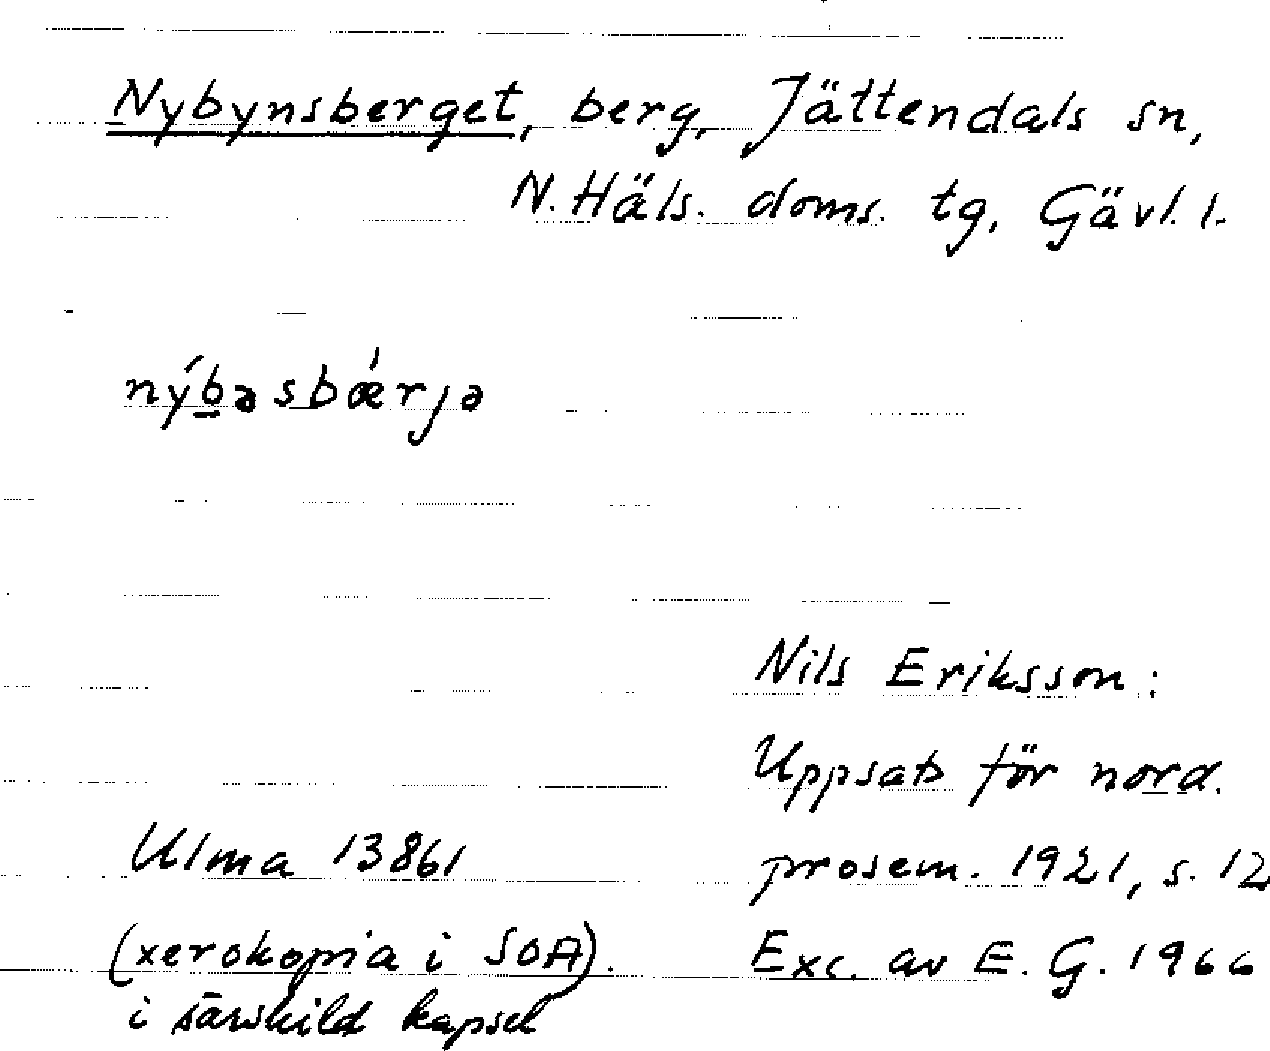 Nybynsberget, berg, Jättendals sn,
N. Häls. doms. tg, Gävl. l.
nýbəsbǽrjə
Nils Eriksson:
Uppsats för nord.
Ulma 13861
prosem. 1921, s. 12
(xerokopia i SOA).
Exc. av E. G. 1966
i särskild kapsel